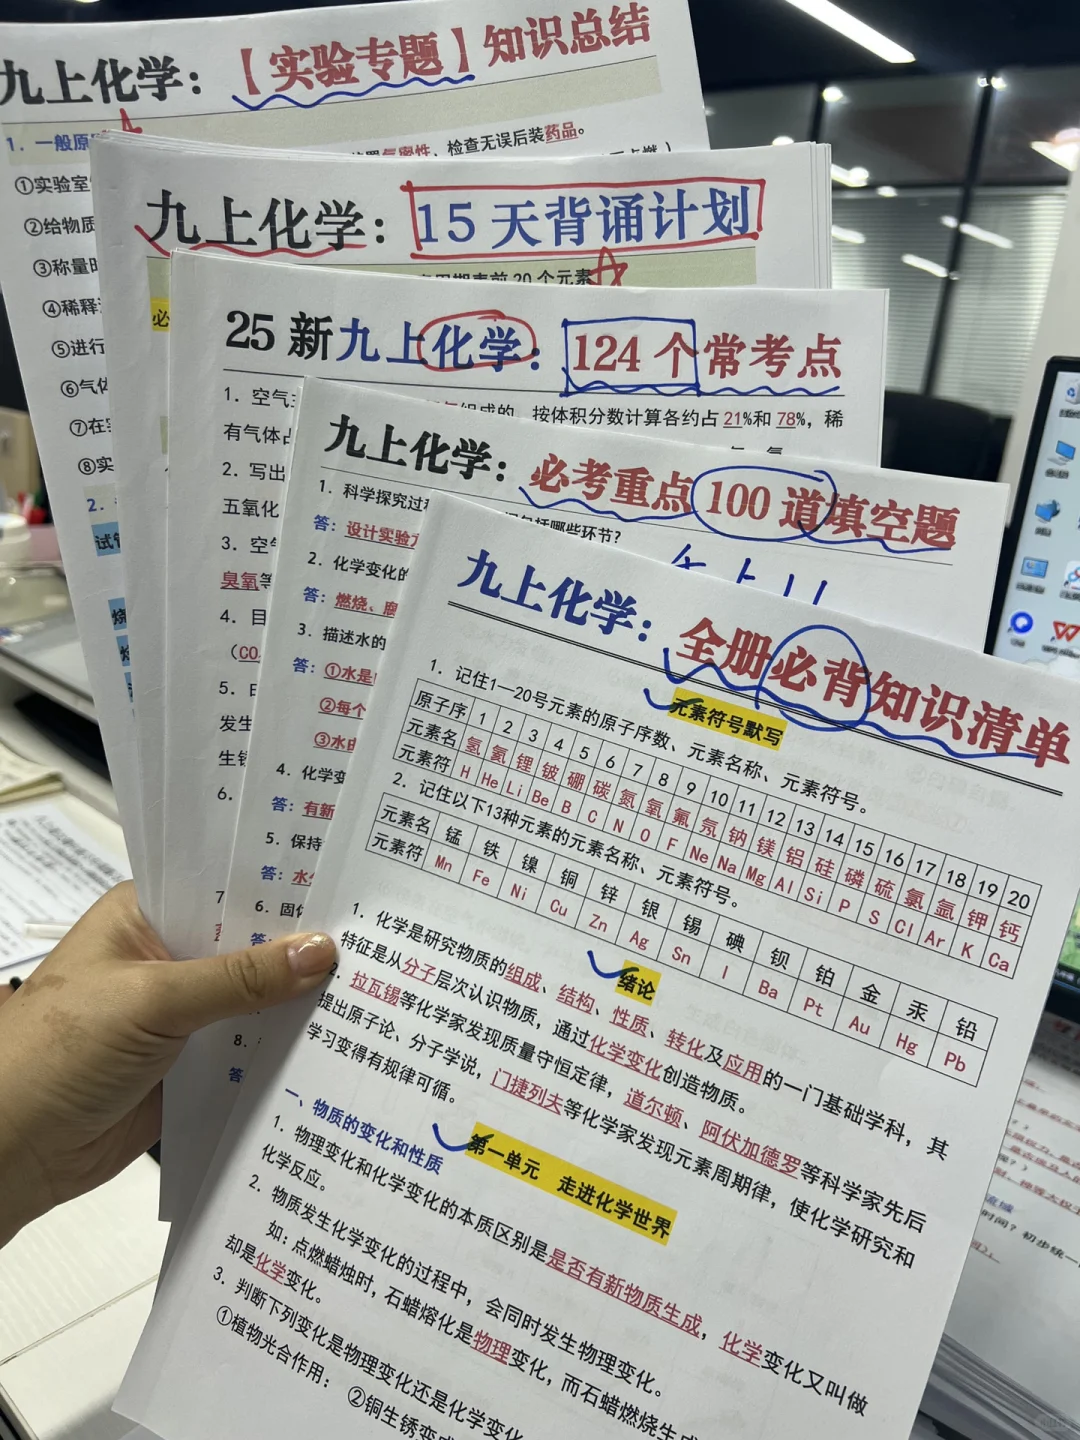 九上化学：【实验专题】知识总结
1. 一般原
气密性、检查无误后装药品。
①实验室
②给物质
③称量时
④稀释
⑤进行
⑥气体
⑦在实
⑧实
2.
试管
九上化学：15天背诵计划
周期表前20个元素
必
25新九上化学：124个常考点
1. 空气
组成的，按体积分数计算各约占21%和78%，稀
有气体占
2. 写出
五氧化
3. 空气
臭氧等
4. 目
（CO
5.
发生
生锈
6.
7
8.
九上化学：必考重点100道填空题
1. 科学探究过程
包括哪些环节？
答：设计实验方
2. 化学变化的
答：燃烧、
3. 描述水的
答：①水是
②每个
③水由
4. 化学变
答：有新
5. 保持
答：水分
6. 固体
答：
答
九上化学：全册必背知识清单
元素符号默写
1. 记住1—20号元素的原子序数、元素名称、元素符号。
原子序 1 2 3 4 5 6 7 8 9 10 11 12 13 14 15 16 17 18 19 20
元素名 氢 氦 锂 铍 硼 碳 氮 氧 氟 氖 钠 镁 铝 硅 磷 硫 氯 氩 钾 钙
元素符 H He Li Be B C N O F Ne Na Mg Al Si P S Cl Ar K Ca
2. 记住以下13种元素的元素名称、元素符号。
元素名 锰 铁 镍 铜 锌 银 锡 碘 钡 铂 金 汞 铅
元素符 Mn Fe Ni Cu Zn Ag Sn I Ba Pt Au Hg Pb
绪论
1. 化学是研究物质的组成、结构、性质、转化及应用的一门基础学科，其
特征是从分子层次认识物质，通过化学变化创造物质。
2. 拉瓦锡等化学家发现质量守恒定律，道尔顿、阿伏加德罗等科学家先后
提出原子论、分子学说，门捷列夫等化学家发现元素周期律，使化学研究和
学习变得有规律可循。
第一单元 走进化学世界
一、物质的变化和性质
1. 物理变化和化学变化的本质区别是是否有新物质生成，化学变化又叫做
化学反应。
2. 物质发生化学变化的过程中，会同时发生物理变化。
如：点燃蜡烛时，石蜡熔化是物理变化，而石蜡燃烧生成
却是化学变化。
3. 判断下列变化是物理变化还是化学变化
①植物光合作用： ②铜生锈变